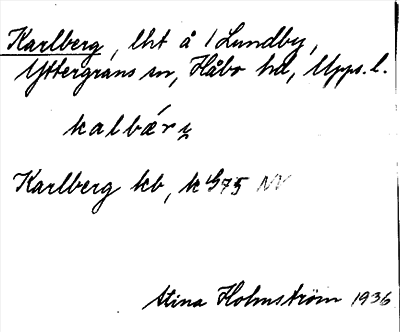 Karlberg, lht å 1 Lundby,
Yttergrans sn, Håbo hd, Upps. l.
kalbær
Karlberg kb, k G75 NV
Stina Holmström 1936